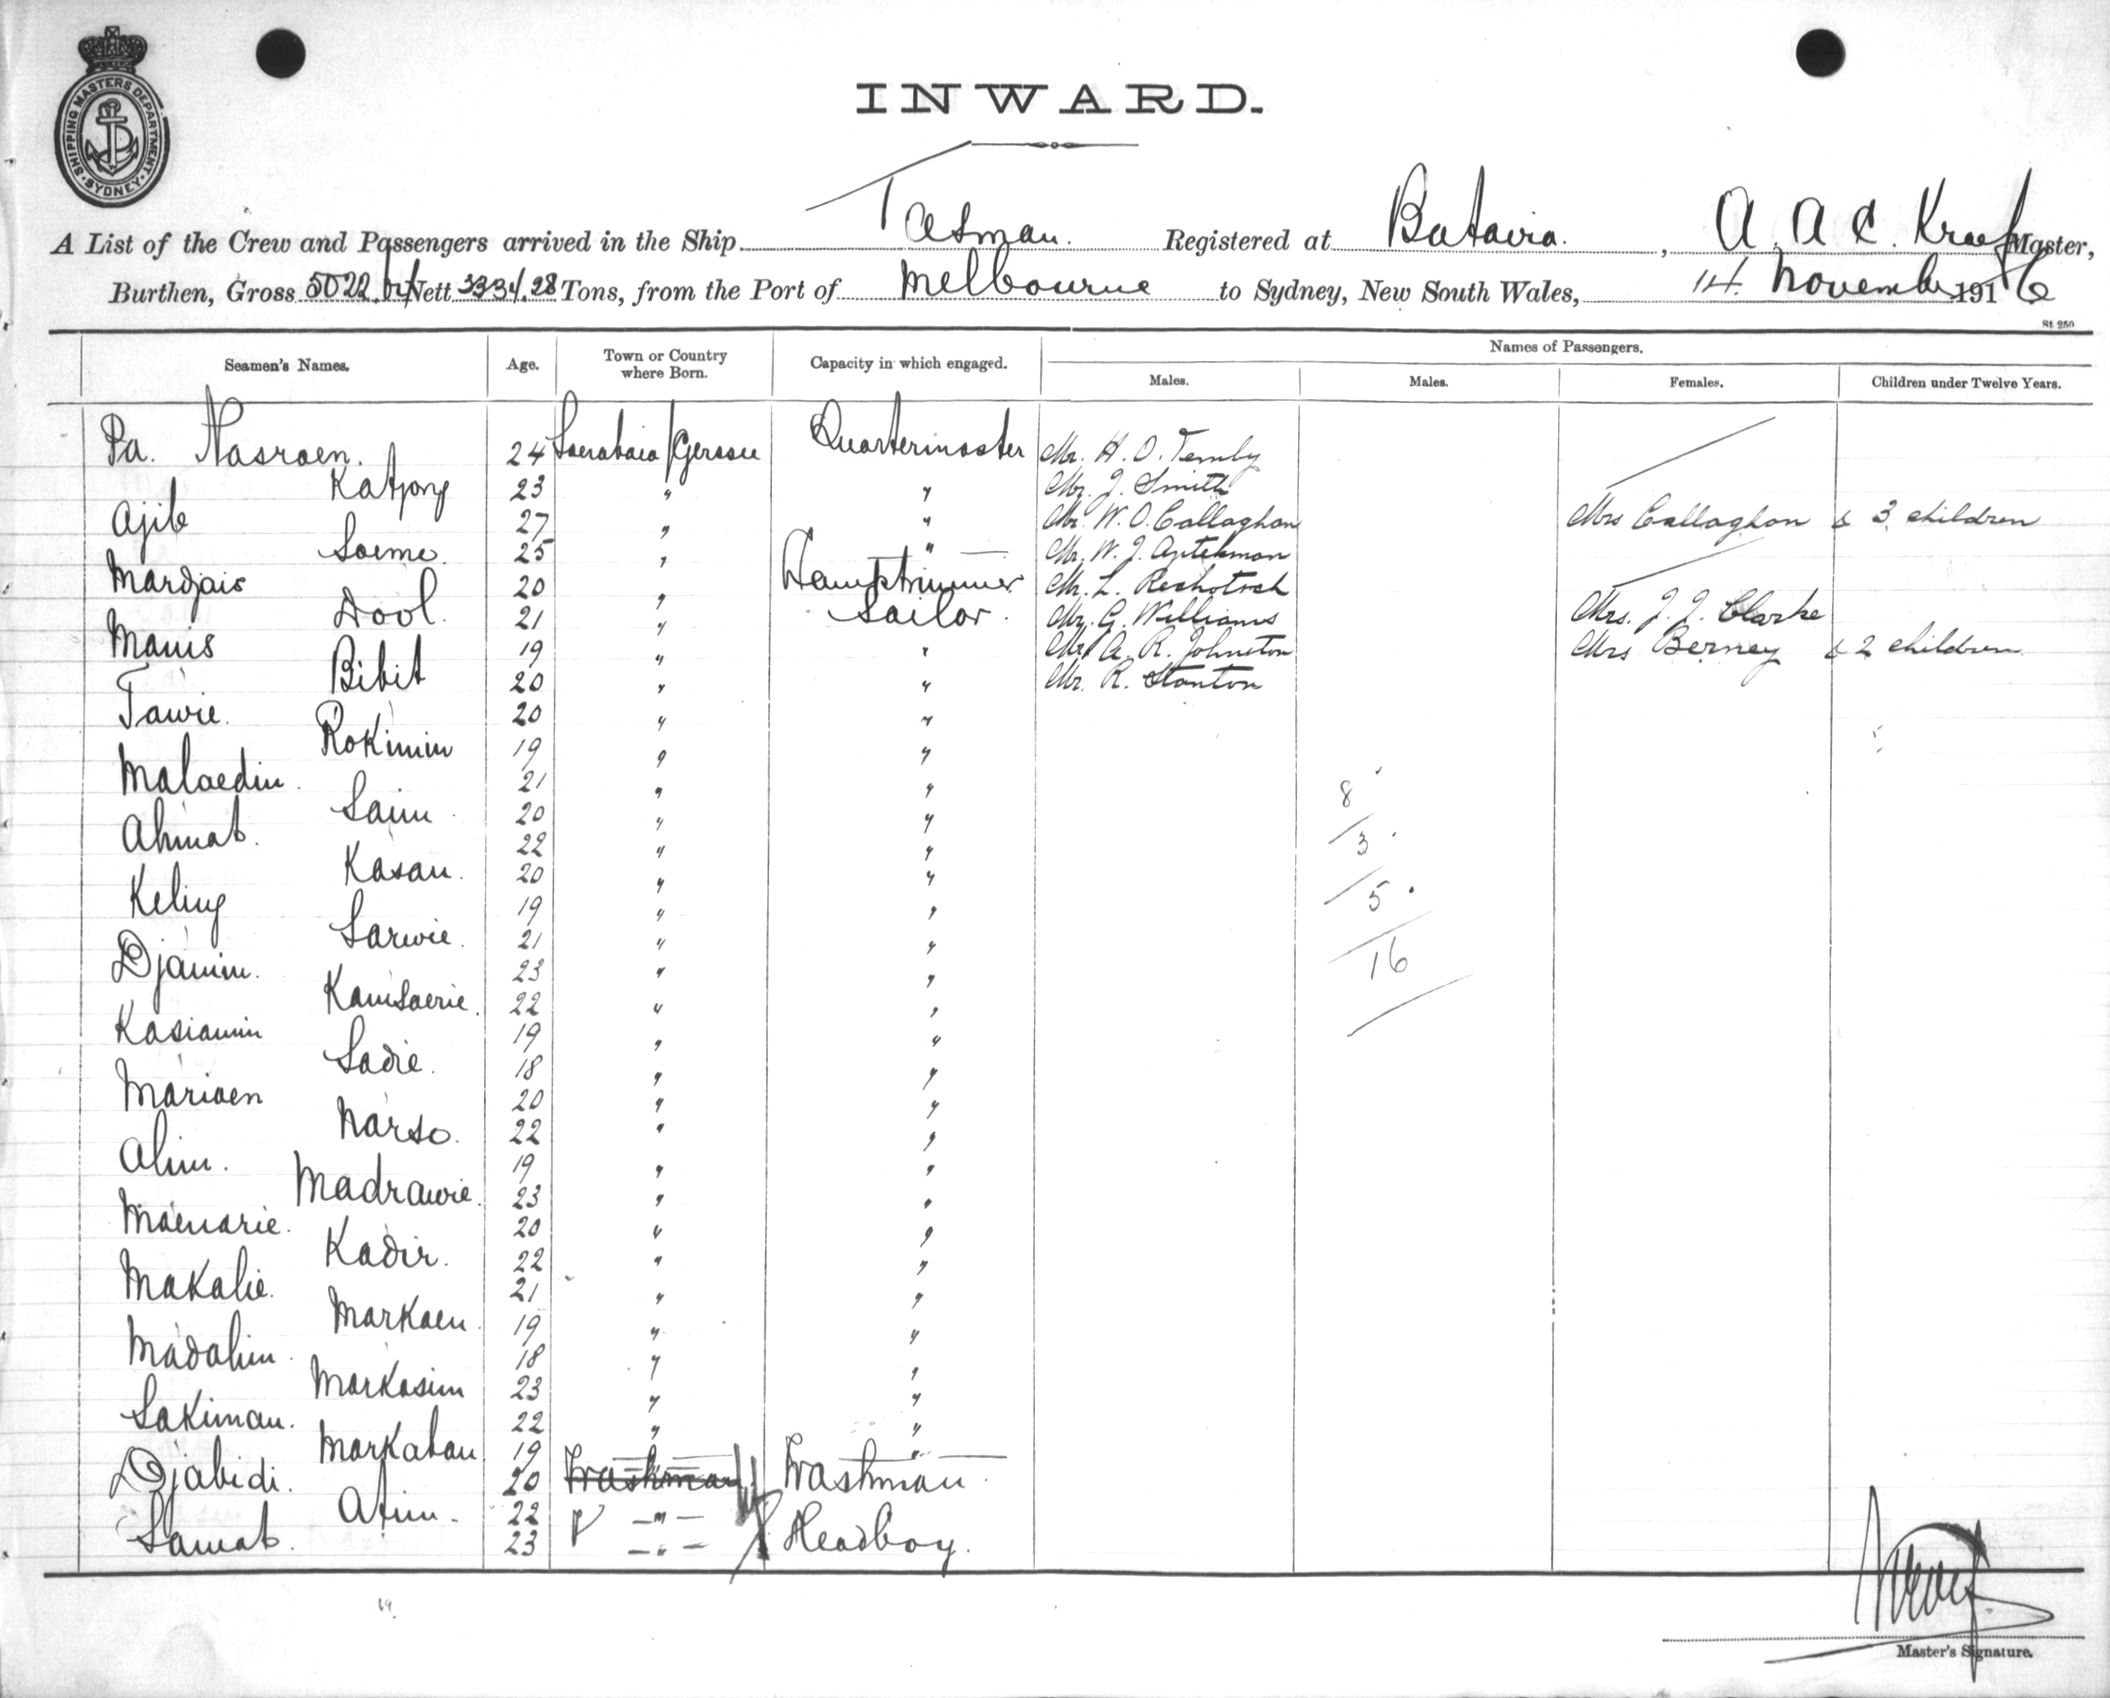 SHIPPING MASTERS DEPARTMENT SYDNEY
INWARD.
A List of the Crew and Passengers arrived in the Ship Tasman. Registered at Batavia. , A. A. C. Kraef Master,
Burthen, Gross 5022 Nett 3334.28 Tons, from the Port of Melbourne to Sydney, New South Wales, 14. November 1916
St 250
Seamen's Names. Age. Town or Country where Born. Capacity in which engaged. Names of Passengers.
Males. Males. Females. Children under Twelve Years.
Pa. Nasraen. 24 Soerabaia / Quartermaster Mr. H. O. Temby
Katjong 23 " " Mr. J. Smith
Ajib 27 " " Mr. W. O. Callaghan Mrs Callaghan & 3 children
Soemo. 25 " " Mr. W. J.
Mardjais 20 " Lamptrimmer Mr. L.
Dool. 21 " Sailor. Mr. G. Williams Mrs. J. J. Clarke
Manis 19 " " Mr A. R. Johnston Mrs Berney & 2 children
Bibit 20 " " Mr. R. Stanton
Tawie. 20 " "
Rokimin 19 " "
Malaedin. 21 " "
Saim. 20 " "
Ahmat. 22 " "
Kasan. 20 " "
Keling 19 " "
Sarwie. 21 " "
Djamin. 23 " "
Kamsaerie. 22 " "
Kasiamin 19 " "
Sadie. 18 " "
Mariaen 20 " "
Narso. 22 " "
Alim. 19 " "
Madrawie. 23 " "
Maenarie. 20 " "
Kadir. 22 " "
Makalie. 21 " "
Markaen. 19 " "
Madalim. 18 " "
Markasim 23 " "
Sakiman. 22 " "
Markaban 19 " "
Djabidi. 20 Trashman Trashman.
Atim. 22 "
Samat. 23 " Headboy.
8
3
5
16
Master's Signature.